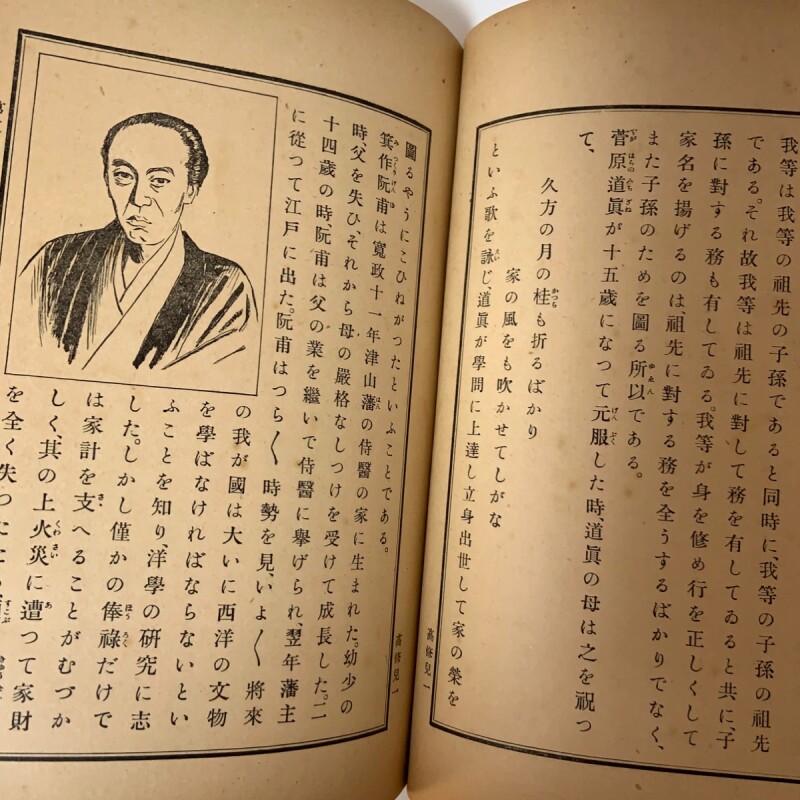 我等は我等の祖先の子孫であると同時に、我等の子孫の祖先
である。それ故我等は祖先に對して務を有してゐると共に、子
孫に對する務も有してゐる。我等が身を修め行を正しくして
家名を揚げるのは、祖先に對する務を全うするばかりでなく、
また子孫のためを圖る所以である。
菅原道眞が十五歲になつて元服した時、道眞の母は之を祝つ
て、
久方の月の桂も折るばかり
家の風をも吹かせてしがな
といふ歌を詠じ、道眞が學問に上達し立身出世して家の榮を
高修兒一
圖るやうにこひねがつたといふことである。
箕作阮甫は寬政十一年津山藩の侍醫の家に生まれた。幼少の
時、父を失ひ、それから母の嚴格なしつけを受けて成長した。二
十四歲の時、阮甫は父の業を繼いで侍醫に擧げられ、翌年藩主
に從つて江戶に出た。阮甫はつら〱時勢を見、いよ〱將來
の我が國は大いに西洋の文物
を學ばなければならないとい
ふことを知り、洋學の研究に志
した。しかし僅かの俸祿だけで
は家計を支へることがむづか
しく、其の上火災に遭つて家財
を全く失つた